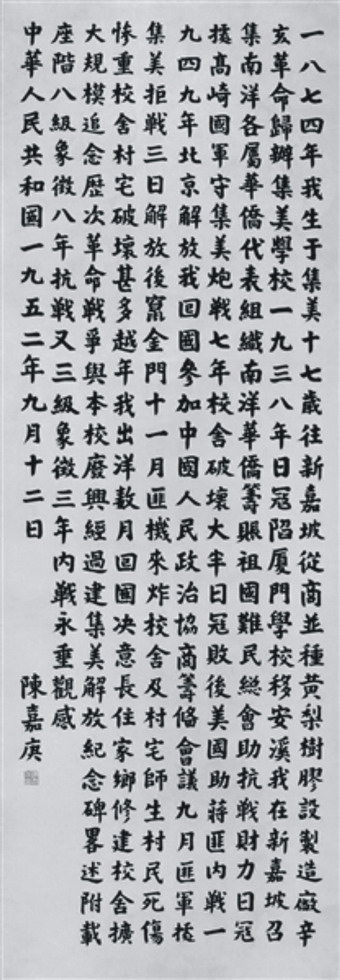 一八七四年我生于集美十七歲往新嘉坡從商並種黄梨樹膠設製造廠辛
亥革命歸辦集美學校一九三八年日冦陷厦門學校移安溪我在新嘉坡召
集南洋各屬華僑代表組織南洋華僑籌賬祖國難民総會助抗戰財力日冦
據高崎國軍守集美炮戰七年校舍破壞大半日冦敗後美國助蔣匪内戰一
九四九年北京解放我回國參加中國人民政治協商籌偹會議九月匪軍據
集美拒戰三日解放後竄金門十一月匪機來炸校舍及村宅師生村民死傷
惨重校舍村宅破壞甚多越年我出洋数月回國决意長住家鄉修建校舍擴
大規模追念歷次革命戰爭與本校廢興經過建集美解放紀念碑畧述附載
座階八級象徵八年抗戰又三級象徵三年内戰永垂觀感
中華人民共和國一九五二年九月十二日 陳嘉庚